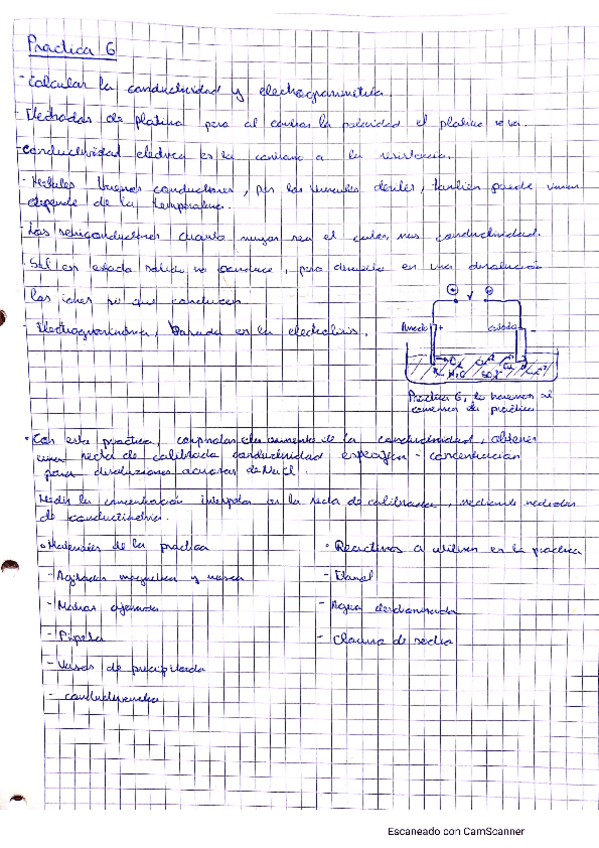 Practica 6
- Calcular la conductividad y electrogravimetria.
- Electrodos de platino para al la polaridad el platino se va.
- Conductividad electrica es la contrario a la resistencia.
- Metales buenos conductores, por los dentes, tambien puede
depende de la temperatura.
- Los semiconductores cuanto mayor sea el calor, mas conductividad.
- Sal en estado solido no conduce, pero disuelta en una disolución
los iones si que conducen
- Electrogravimetria, basada en la electrolisis.
+ V -
Anodo + catodo -
H₂O SO₄²⁻ Cu²⁺
Practica 6, la haremos si
tenemos de practica
• Con esta practica, comprobar el aumento de la conductividad, obtener
una recta de calibrado conductividad especifica - concentración
para disoluciones acuosas de NaCl.
Medir la concentración interpolar en la recta de calibrado, mediante medidas
de conductimetria.
• Materiales de la practica
- Agitador magnetico y
- Matraz aforado
- Pipeta
- Vasos de precipitado
- conductimetro
• Reactivos a utilizar en la practica
- Etanol
- Agua desionizada
- Cloruro de sodio
Escaneado con CamScanner